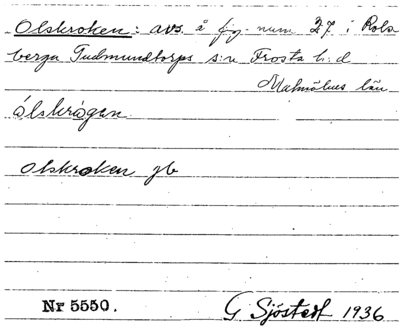 Olskroken: avs. å fig. num 27 i Rols
berga Gudmundtorps s:n Frosta h:d
Malmöhus län
ålskrågen
Olskroken gb
Nr 5550. G. Sjöstedt 1936